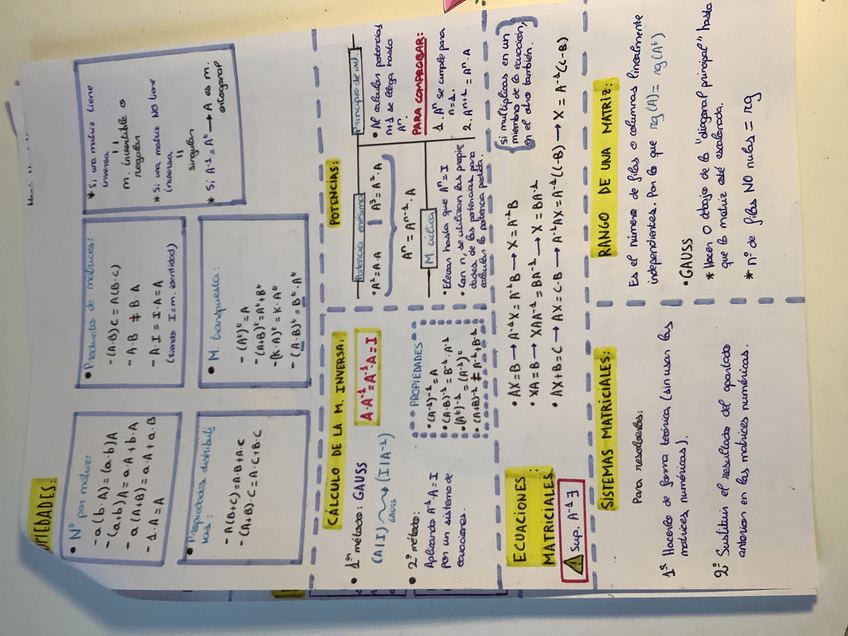 PIEDADES:
• Nº por matriz:
- a(b·A) = (a·b)A
- (a+b)A = a·A + b·A
- a(A+B) = a·A + a·B
- 1·A = A
• Producto de matrices:
- (A·B)C = A(B·C)
- A·B ≠ B·A
- A·I = I·A = A
(siendo I = m. identidad)
* Si una matriz tiene
inversa
m. invertible o
regular
* Si una matriz NO tiene
inversa
singular
* Si A⁻¹ = Aᵗ → A es m.
ortogonal
• Propiedades distributi
vas:
- A(B+C) = A·B + A·C
- (A+B)·C = A·C + B·C
• M. transpuesta:
- (Aᵗ)ᵗ = A
- (A+B)ᵗ = Aᵗ + Bᵗ
- (K·A)ᵗ = K·Aᵗ
- (A·B)ᵗ = Bᵗ·Aᵗ
CÁLCULO DE LA M. INVERSA:
• 1er método: GAUSS
(A|I) (I|A⁻¹)
GAUSS
A·A⁻¹ = A⁻¹·A = I
• 2º método:
Aplicando A⁻¹·A = I
por un sistema de
ecuaciones.
PROPIEDADES
• (A⁻¹)⁻¹ = A
• (A·B)⁻¹ = B⁻¹·A⁻¹
• (Aᵗ)⁻¹ = (A⁻¹)ᵗ
• (A+B)⁻¹ ≠ A⁻¹ + B⁻¹
POTENCIAS:
Potencia enésima
• A² = A·A
A³ = A²·A
Aⁿ = Aⁿ⁻¹·A
M. cíclica
• Elevar hasta que Aⁿ = I
• Con n, se utilizan las propie
dades de las potencias para
calcular la potencia pedida.
Principio de ind.
• Al calcular potencias
n+1 se llega hasta
Aⁿ.
PARA COMPROBAR:
1. Aⁿ se cumple para
n=1.
2. Aⁿ⁺¹ = Aⁿ·A
ECUACIONES
MATRICIALES
Sup. A⁻¹ ∃
• AX = B → A⁻¹AX = A⁻¹B → X = A⁻¹B
• XA = B → XAA⁻¹ = BA⁻¹ → X = BA⁻¹
• AX + B = C → AX = C - B → A⁻¹AX = A⁻¹(C-B) → X = A⁻¹(C-B)
Si multiplicas en un
miembro de la ecuación,
en el otro también.
SISTEMAS MATRICIALES:
Para resolverlos:
1º Hacerlo de forma teórica (sin usar las
matrices numéricas).
2º Sustituir el resultado del apartado
anterior en las matrices numéricas.
RANGO DE UNA MATRIZ:
Es el número de filas o columnas linealmente
independientes. Por lo que rg(A) = rg(Aᵗ)
• GAUSS
* Hacer 0 debajo de la "diagonal principal" hasta
que la matriz esté escalonada.
* nº de filas NO nulas = rg